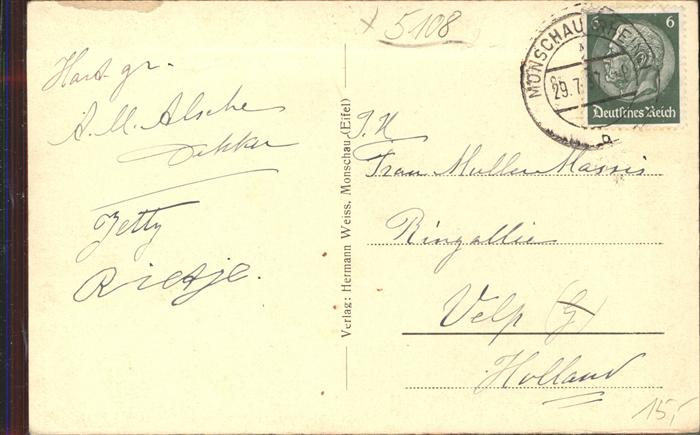 5108
Hart. gr.
A. M. Alsche
Dekker
Jetty
Rietje.
Verlag: Hermann Weiss, Monschau (Eifel)
MONSCHAU
29.7.
6 6
Deutsches Reich
Frau Muller Massis
Ringallee
Velp (G)
Holland
15,-